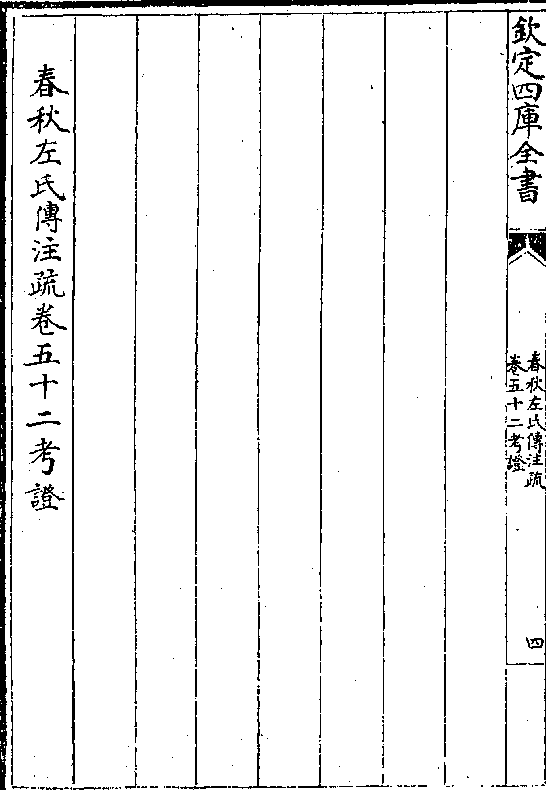 欽定四庫全書
春秋左氏傳注疏
卷五十二考證
四
春秋左氏傳注疏卷五十二考證